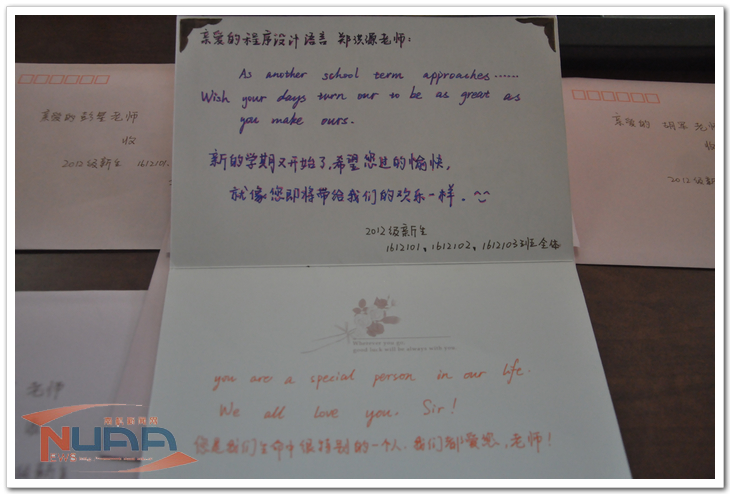 亲爱的程序设计语言 郑洪源老师：
As another school term approaches......
Wish your days turn our to be as great as
you make ours.
新的学期又开始了，希望您过的愉快，
就像您即将带给我们的欢乐一样。
2012级新生
1612101、1612102、1612103班全体
Wherever you go,
good luck will be always with you.
you are a special person in our life.
We all love you, Sir!
您是我们生命中很特别的一个人，我们都爱您，老师！
亲爱的彭星老师
收
2012级新生 1612101、
亲爱的 胡军 老师
收
2012级新
老师
NUAA